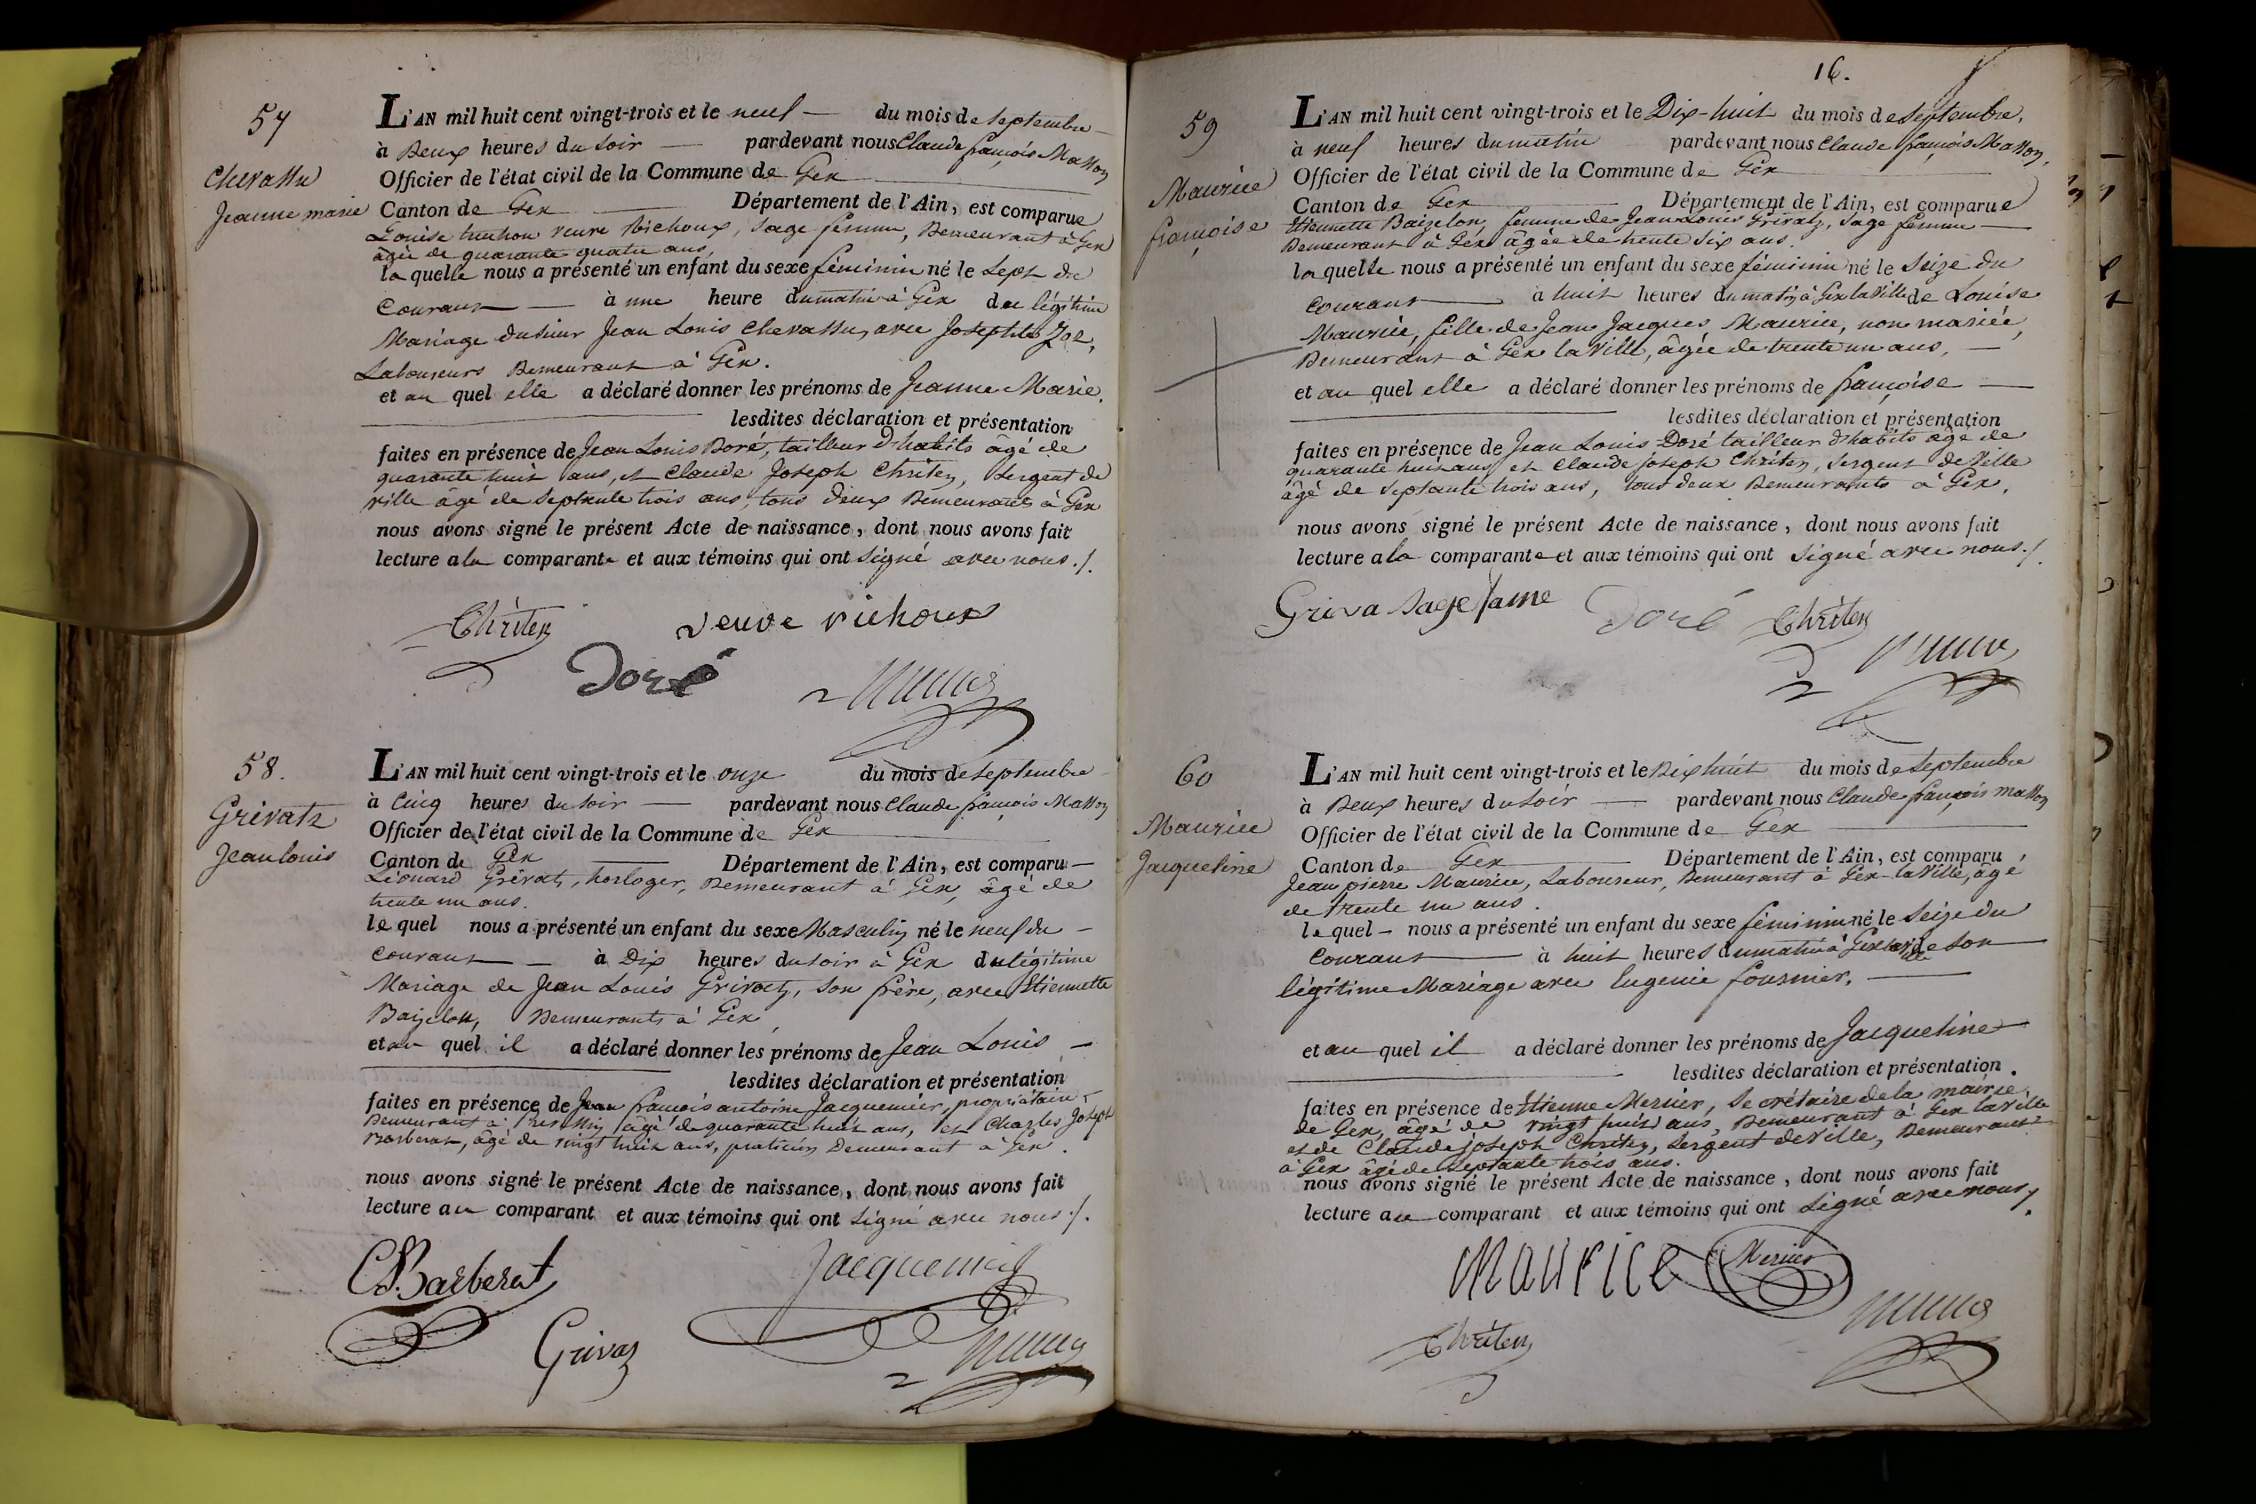 57
Chevassu
Jeanne marie
L'AN mil huit cent vingt-trois et le neuf — du mois de Septembre —
à Deux heures du soir — pardevant nous Claude françois Masson
Officier de l'état civil de la Commune de Gex
Canton de Gex — Département de l'Ain, est comparue
Louise truchon veuve Richoux, Sage femme, Demeurant à Gex
âgée de quarante quatre ans,
la quelle nous a présenté un enfant du sexe féminin né le Sept du
Courant — à une heure du matin à Gex du légitime
Mariage du sieur Jean Louis Chevassu, avec Josephte Zoé,
Laboureurs Demeurant à Gex.
et au quel elle a déclaré donner les prénoms de Jeanne Marie.
lesdites déclaration et présentation
faites en présence de Jean Louis Doré, tailleur d'habits âgé de
quarante huit ans, et Claude Joseph Chriten, Sergent de
ville âgé de Septante trois ans, tous deux Demeurants à Gex
nous avons signé le présent Acte de naissance, dont nous avons fait
lecture a la comparante et aux témoins qui ont Signé avec nous ./.
Chriten veuve richoux
Doré
58.
Grivatz
Jean louis
L'AN mil huit cent vingt-trois et le onze du mois de Septembre
à Cinq heures du soir — pardevant nous Claude françois Masson
Officier de l'état civil de la Commune de Gex
Canton de Gex — Département de l'Ain, est comparu —
Léonard Grivatz, horloger, Demeurant à Gex, âgé de
trente un ans.
le quel nous a présenté un enfant du sexe Masculin né le neuf du —
Courant — à Dix heures du soir à Gex du légitime
Mariage de Jean Louis Grivatz, son frère, avec Etiennette
Baizelon, Demeurants à Gex,
et au quel il a déclaré donner les prénoms de Jean Louis —
lesdites déclaration et présentation
faites en présence de Jean françois antoine Jacquemier, propriétaire
Demeurant à âgé de quarante huit ans, et Charles Joseph
Barberat, âgé de vingt huit ans, praticien Demeurant à Gex.
nous avons signé le présent Acte de naissance, dont nous avons fait
lecture au comparant et aux témoins qui ont Signé avec nous ./.
C J Barberat Jacquemier
Grivaz
16.
59
Maurice
françoise
L'AN mil huit cent vingt-trois et le Dix-huit du mois de Septembre,
à neuf heures du matin pardevant nous Claude françois Masson,
Officier de l'état civil de la Commune de Gex
Canton de Gex Département de l'Ain, est comparue
Etiennette Baizelon, femme de Jean Louis Grivatz, Sage femme —
Demeurant à Gex âgée de trente Six ans.
la quelle nous a présenté un enfant du sexe féminin né le Seize du
Courant — à huit heures du matin à Gex la Ville de Louise
Maurice, fille de Jean Jacques Maurice, non mariée,
Demeurant à Gex la Ville, âgée de trente un ans, —
et au quel elle a déclaré donner les prénoms de françoise —
lesdites déclaration et présentation
faites en présence de Jean Louis Doré tailleur d'habits âgé de
quarante huit ans, et Claude Joseph Chriten, Sergent de Ville
âgé de Septante trois ans, tous deux Demeurants à Gex,
nous avons signé le présent Acte de naissance, dont nous avons fait
lecture a la comparante et aux témoins qui ont Signé avec nous ./.
Griva Sage fame Doré Chriten
60
Maurice
Jacqueline
L'AN mil huit cent vingt-trois et le Dix huit du mois de Septembre
à Deux heures du soir — pardevant nous Claude françois masson
Officier de l'état civil de la Commune de Gex
Canton de Gex Département de l'Ain, est comparu,
Jean pierre Maurice, Laboureur, Demeurant à Gex-la Ville, âgé
de trente un ans.
le quel — nous a présenté un enfant du sexe féminin né le Seize du
Courant — à huit heures du matin à Gex la ville de Son
légitime Mariage avec Eugenie fournier. —
et au quel il a déclaré donner les prénoms de Jacqueline
lesdites déclaration et présentation.
faites en présence de Etienne Mercier, Secrétaire de la mairie
de Gex, âgé de vingt huit ans, Demeurant à Gex la Ville
et de Claude Joseph Chriten, Sergent de Ville, Demeurant
à Gex âgé de Septante trois ans.
nous avons signé le présent Acte de naissance, dont nous avons fait
lecture au comparant et aux témoins qui ont Signé avec nous ./.
Maurice Mercier
Chriten